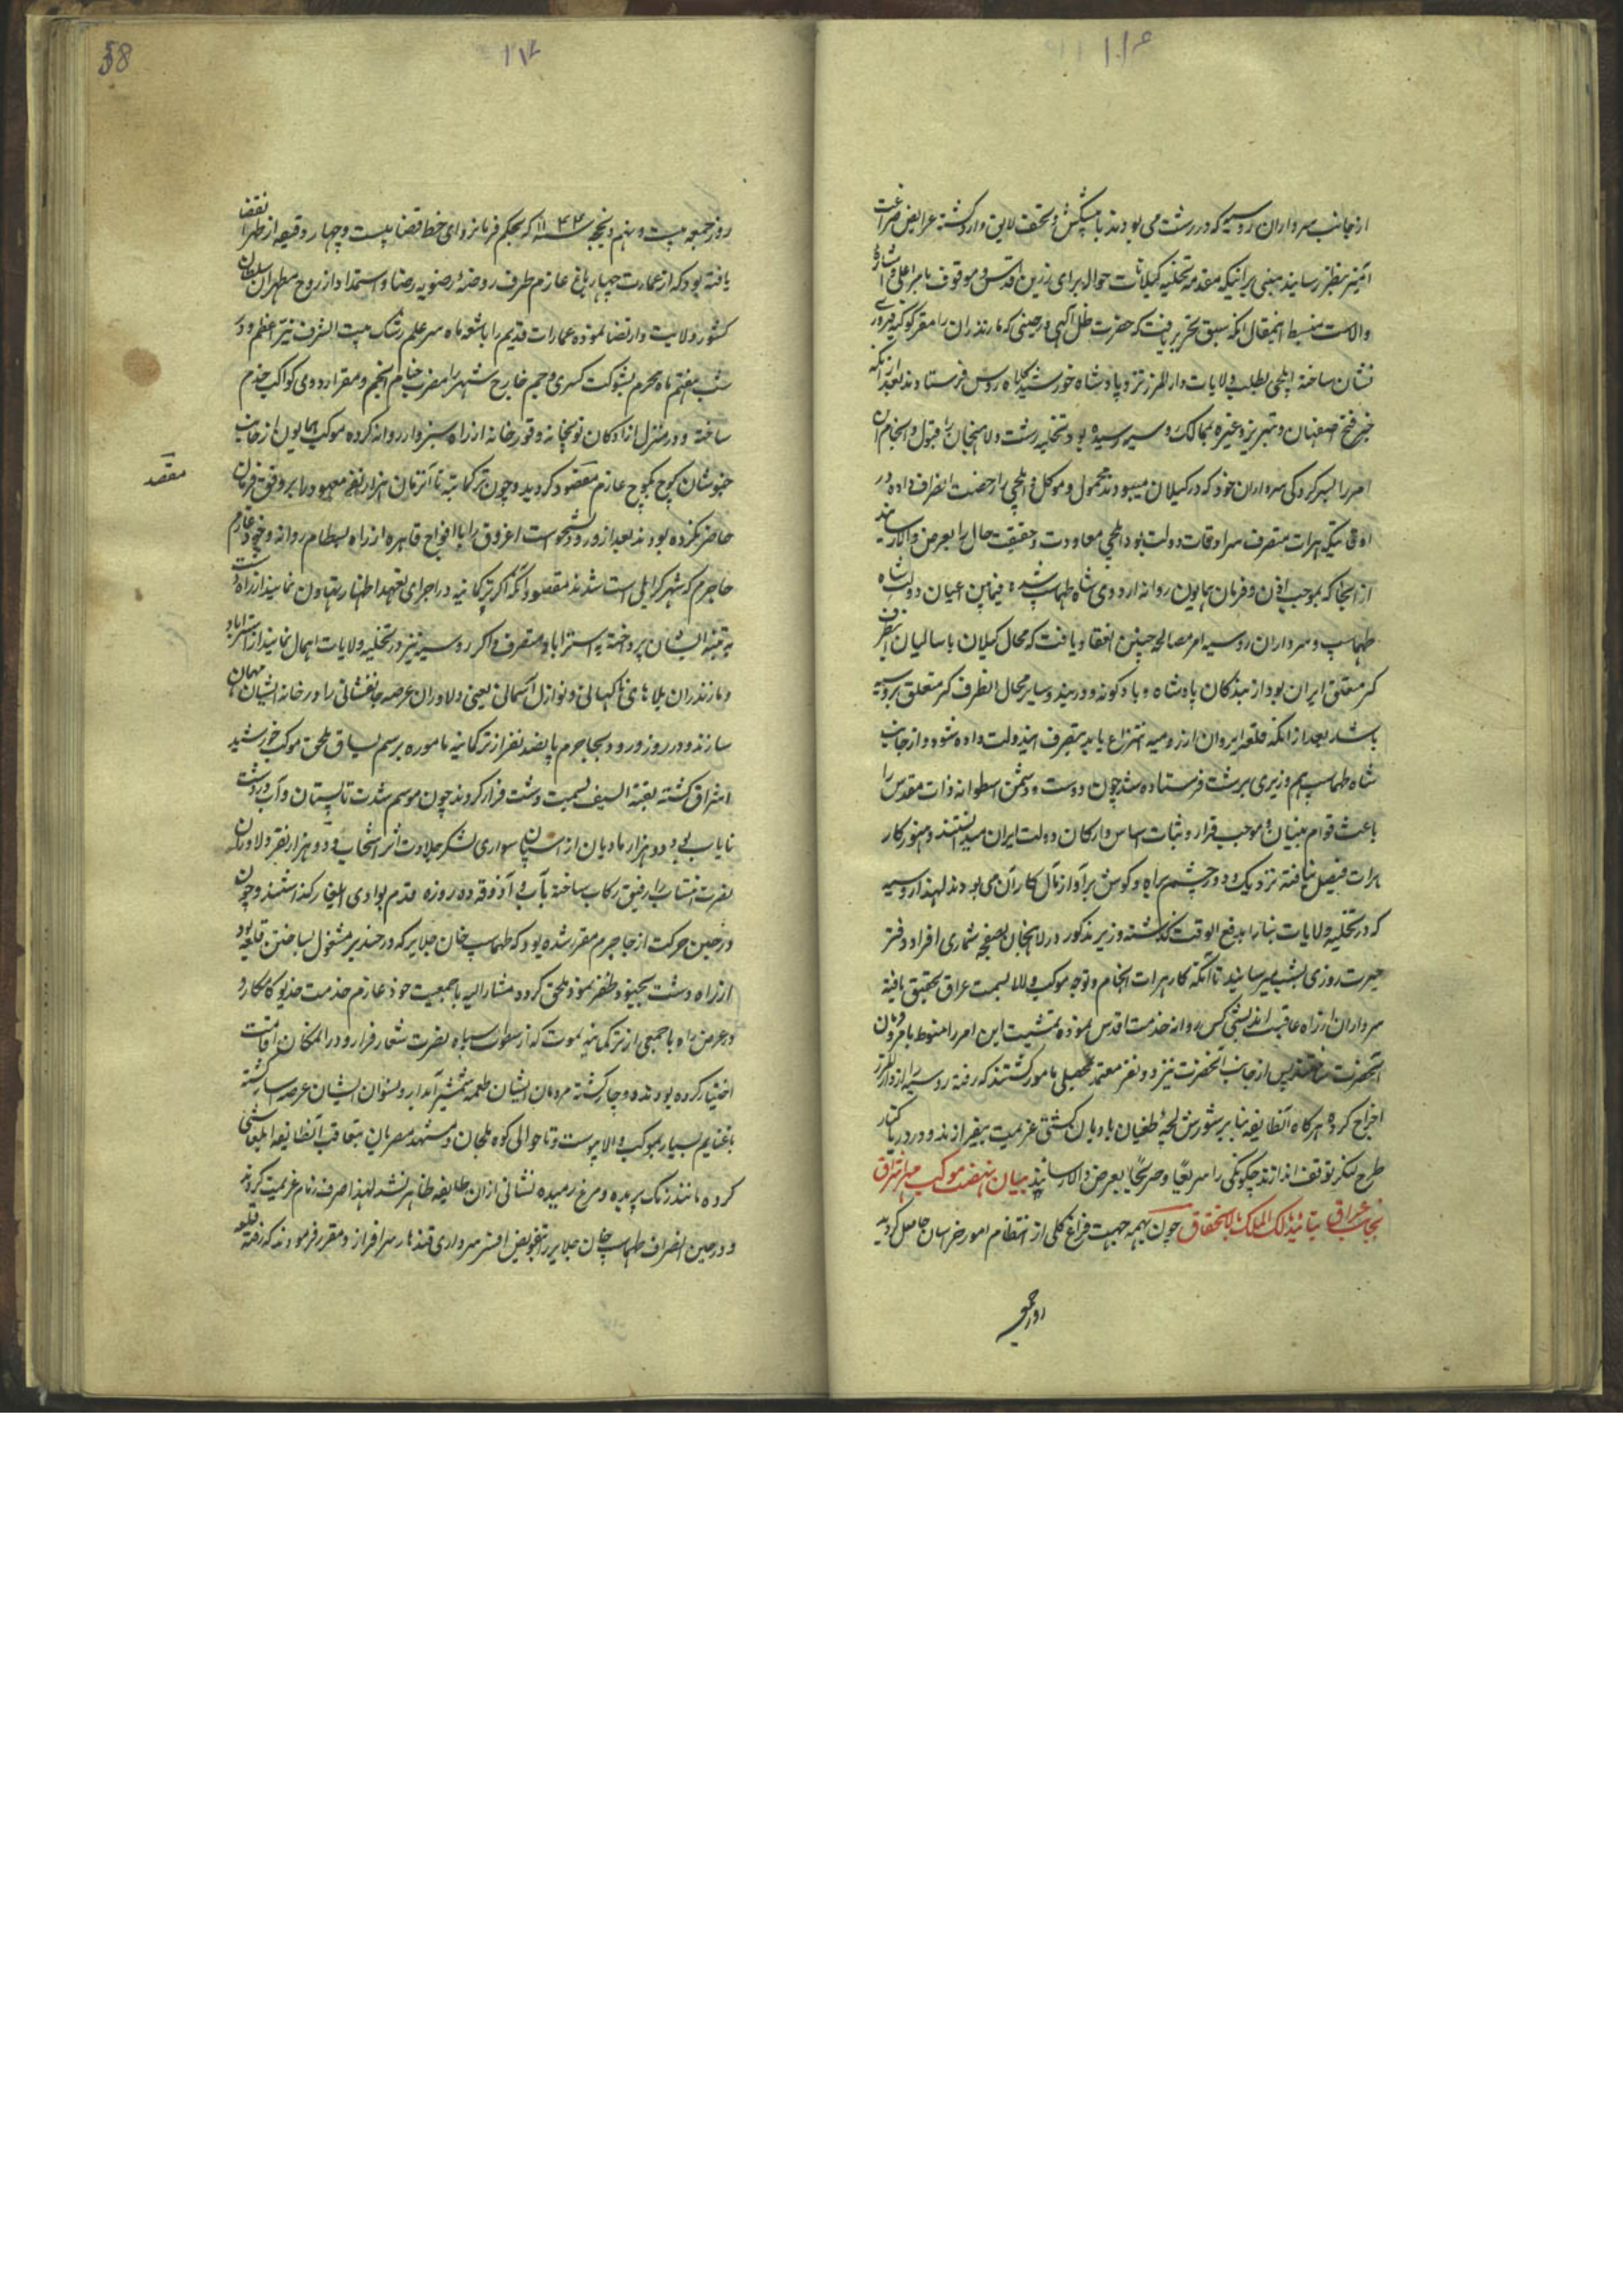 ۱۱۶
از جانب سرداران روسیه که در رشت می بودند با پیشکش و تحف لایق وارد گشته عرایض ضراعت
آمیز بنظر رسانیدند مبنی بر اینکه مقدمه تخلیه گیلانات حواله برای رزین اقدس و موقوف بامر اعلی و اشاره
والاست منبسط اینمقال آنکه سبق تحریر یافت که حضرت ظل آلهی در حینی که مازندران را مقر کوکبه فیروزی
نشان ساخته ایلچی بطلب ولایات دار المرز نزد پادشاه خورشید کلاه روس فرستادند بعد از آنکه
خبر فتح اصفهان و تبریز و غیره بممالک روسیه رسیده بود تخلیه رشت و لاهیجان را قبول و انجام آن
امر را بسرکردگی سرداران خود که در گیلان میبودند محمول و موکل و ایلچی را رخصت انصراف داده در
اوقاتیکه هرات متصرف سرادقات دولت بود ایلچی معاودت و حقیقت حال را بعرض والا رسانید
از آنجا که بموجب اذن و فرمان همایون روانه اردوی شاه طهماسب شده فیمابین اعیان دولت شاه
طهماسب و سرداران روسیه امر مصالحه چنین انعقاد یافت که محال گیلان با سالیان اینطرف
کر متعلق ایران بود از بندگان پادشاه و بادکوبه و دربند و سایر محال آنطرف کر متعلق بروسیه
باشد بعد از آنکه قلعه ایروان از رومیه انتزاع یابد بتصرف ایندولت داده شود و از جانب
شاه طهماسب هم وزیری برشت فرستاده شد چون دوست و دشمن اسطوانه ذات مقدس را
باعث قوام بنیان و موجب قرار و ثبات اساس و ارکان دولت ایران میدانستند و هنوز کار
هرات فیصل نیافته نزدیک و دور چشم براه و گوش بر آواز مآل کار آن می بودند لهذا روسیه
که در تخلیه ولایات بنا را بدفع الوقت گذاشته وزیر مذکور در لاهیجان بصفحه شماری افراد دفتر
حیرت روزی بشب میرسانید تا آنکه کار هرات انجام و توجه موکب والا بسمت عراق تحقیق یافته
سرداران از راه عاقبت اندیشی کس روانه خدمت اقدس نموده تمشیت این امر را منوط بامر و فرمان
آنحضرت ساختند پس از جانب آنحضرت نیز دو نفر معتمد بمحصلی مامور گشتند که رفته روسیه را از دار المرز
اخراج کرده هرگاه آنطایفه بنا بر شورش لجه طغیان بادبان کشتی عزیمت بیفرازند و در دریا کنار
طرح لنگر توقف اندازند چگونگی را سریعا و صریحا بعرض والا رسانند بیان نهضت موکب مهر اشراق
بجانب عراق بتائید مالک الملک بالاستحقاق چون بهمه جهت فراغ کلی از انتظام امور خراسان حاصل گردید
روز جمعه
۱۱۷
58
روز جمعه بیست و نهم ذیحجه سنه ۱۱۴۴ که بحکم فرمانروای خطه قضا بیست و چهار دقیقه از ظهر انقضا
یافته بود که از عمارت چهار باغ عازم طرف روضه رضویه رضا و استمداد از روح مطهر آن سلطان
کشور ولایت و ارتضا نموده عمارات قدیم را باشعه ماه سر علم رشک بیت الشرف نیر اعظم و در
شب هفتم ماه محرم بشوکت کسری و جم خارج شهر را مضرب خیام انجم و مقر اردوی کواکب حشم
ساخته و در منزل ازادکان توپخانه و قورخانه از راه سبزوار روانه کرده موکب همایون از جانب
خبوشان کوچ بکوچ عازم مقصد گردید و چون ترکمانیه تا آنزمان هزار نفر معهود را بر وفق فرمان
مقصد
حاضر نکرده بودند بعد از ورود بخوست اغروق را با افواج قاهره از راه بسطام روانه و خود عازم
جاجرم که شهر کرایلی است شدند مقصود آنکه اگر ترکمانیه در اجرای تعهد اظهار تهاون نمایند از راه دشت
به تنبیه ایشان پرداخته به استراباد منصرف و اگر روسیه نیز در تخلیه ولایات اهمال نمایند از استراباد
و مازندران بلاهای ناگهانی و نوازل آسمانی یعنی دلاوران عرصه جانفشانی را در خانه ایشان مهمان
سازند و در روز ورود بجاجرم پانصد نفر از ترکمانیه ماموره برسم یساق ملحق موکب خورشید
اشراق گشته بقیة السیف بسمت دشت فرار کردند چون موسم شدت تابستان و آب در دشت
نایاب بود دو هزار مادیان از اسبان سواری لشکر جلادت اثر انتخاب و دو هزار نفر دلاوران
نصرت انتساب را رفیق رکاب ساخته با آب و آذوقه ده روزه قدم بوادی ایلغار گذاشتند و چون
در حین حرکت از جاجرم مقرر شده بود که طهماسب خان جلایر که در حندبر مشغول بساختن قلعه بود
از راه دشت بجنود ظفر نمود ملحق گردد مشار الیه با جمعیت خود عازم خدمت خدیو کامکار و
در عرض راه با جمعی از ترکمانیه یموت که از سطوت سپاه نصرت شعار فرار و در المکان اقامت
اختیار کرده بودند دوچار گشته مردمان ایشان طعمه شمشیر آبدار و نسوان ایشان عرصه اسار گشته
با غنایم بسیار بموکب والا پیوست و تا حوالی کوه بلخان و مشهد مصریان بتعاقب آنطایفه ایلغامشی
کرده مانند رنگ پریده و مرغ رمیده نشانی از آن طایفه ظاهر نشد لهذا صرف زمام عزیمت کردند
و در حین انصراف طهماسب خان جلایر را بتفویض افسر سرداری قندهار سرافراز و مقرر فرمودند که رفته قلعه